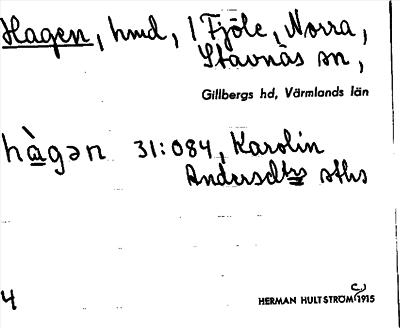 Hagen, hmd, 1 Fjöle, Norra,
Stavnäs sn,
Gillbergs hd, Värmlands län
hàgən 31:084, Karolin
Andersdtrs sths
4 HERMAN HULTSTRÖM C 1915